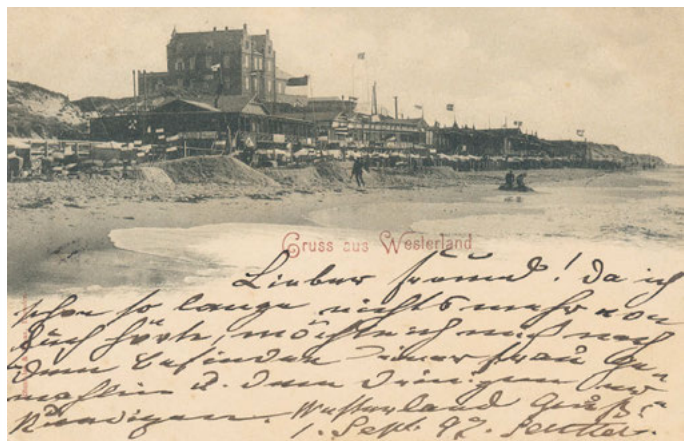 Gruss aus Westerland
Lieber Freund! Da ich
schon so lange nichts mehr von
Euch hörte, möchte ich mich nach
dem Befinden Deiner Frau Ge-
mahlin u. dem Deinigen er-
kundigen. Westerland Gruß
1. Sept. 97.